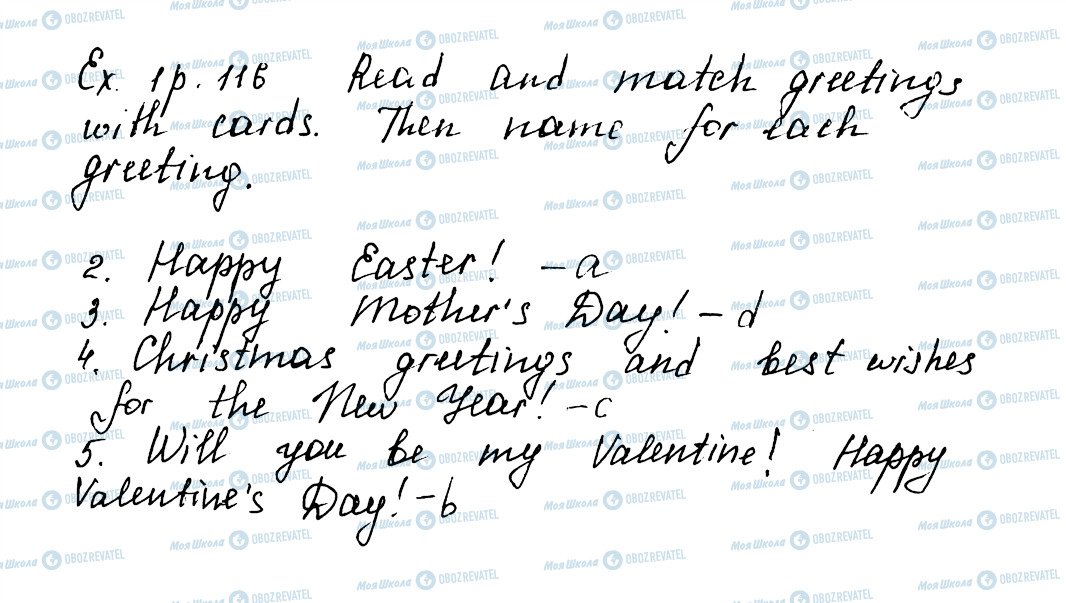 Ex. 1 p. 116 Read and match greetings
with cards. Then name for each
greeting.
2. Happy Easter! – a
3. Happy Mother's Day! – d
4. Christmas greetings and best wishes
for the New Year! – c
5. Will you be my Valentine! Happy
Valentine's Day! – b
МояШкола OBOZREVATEL